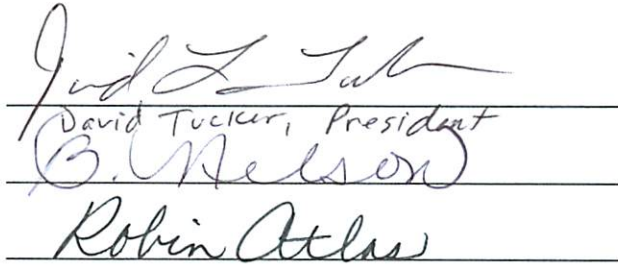 David L Tucker
David Tucker, President
B. Nelson
Robin Atlas